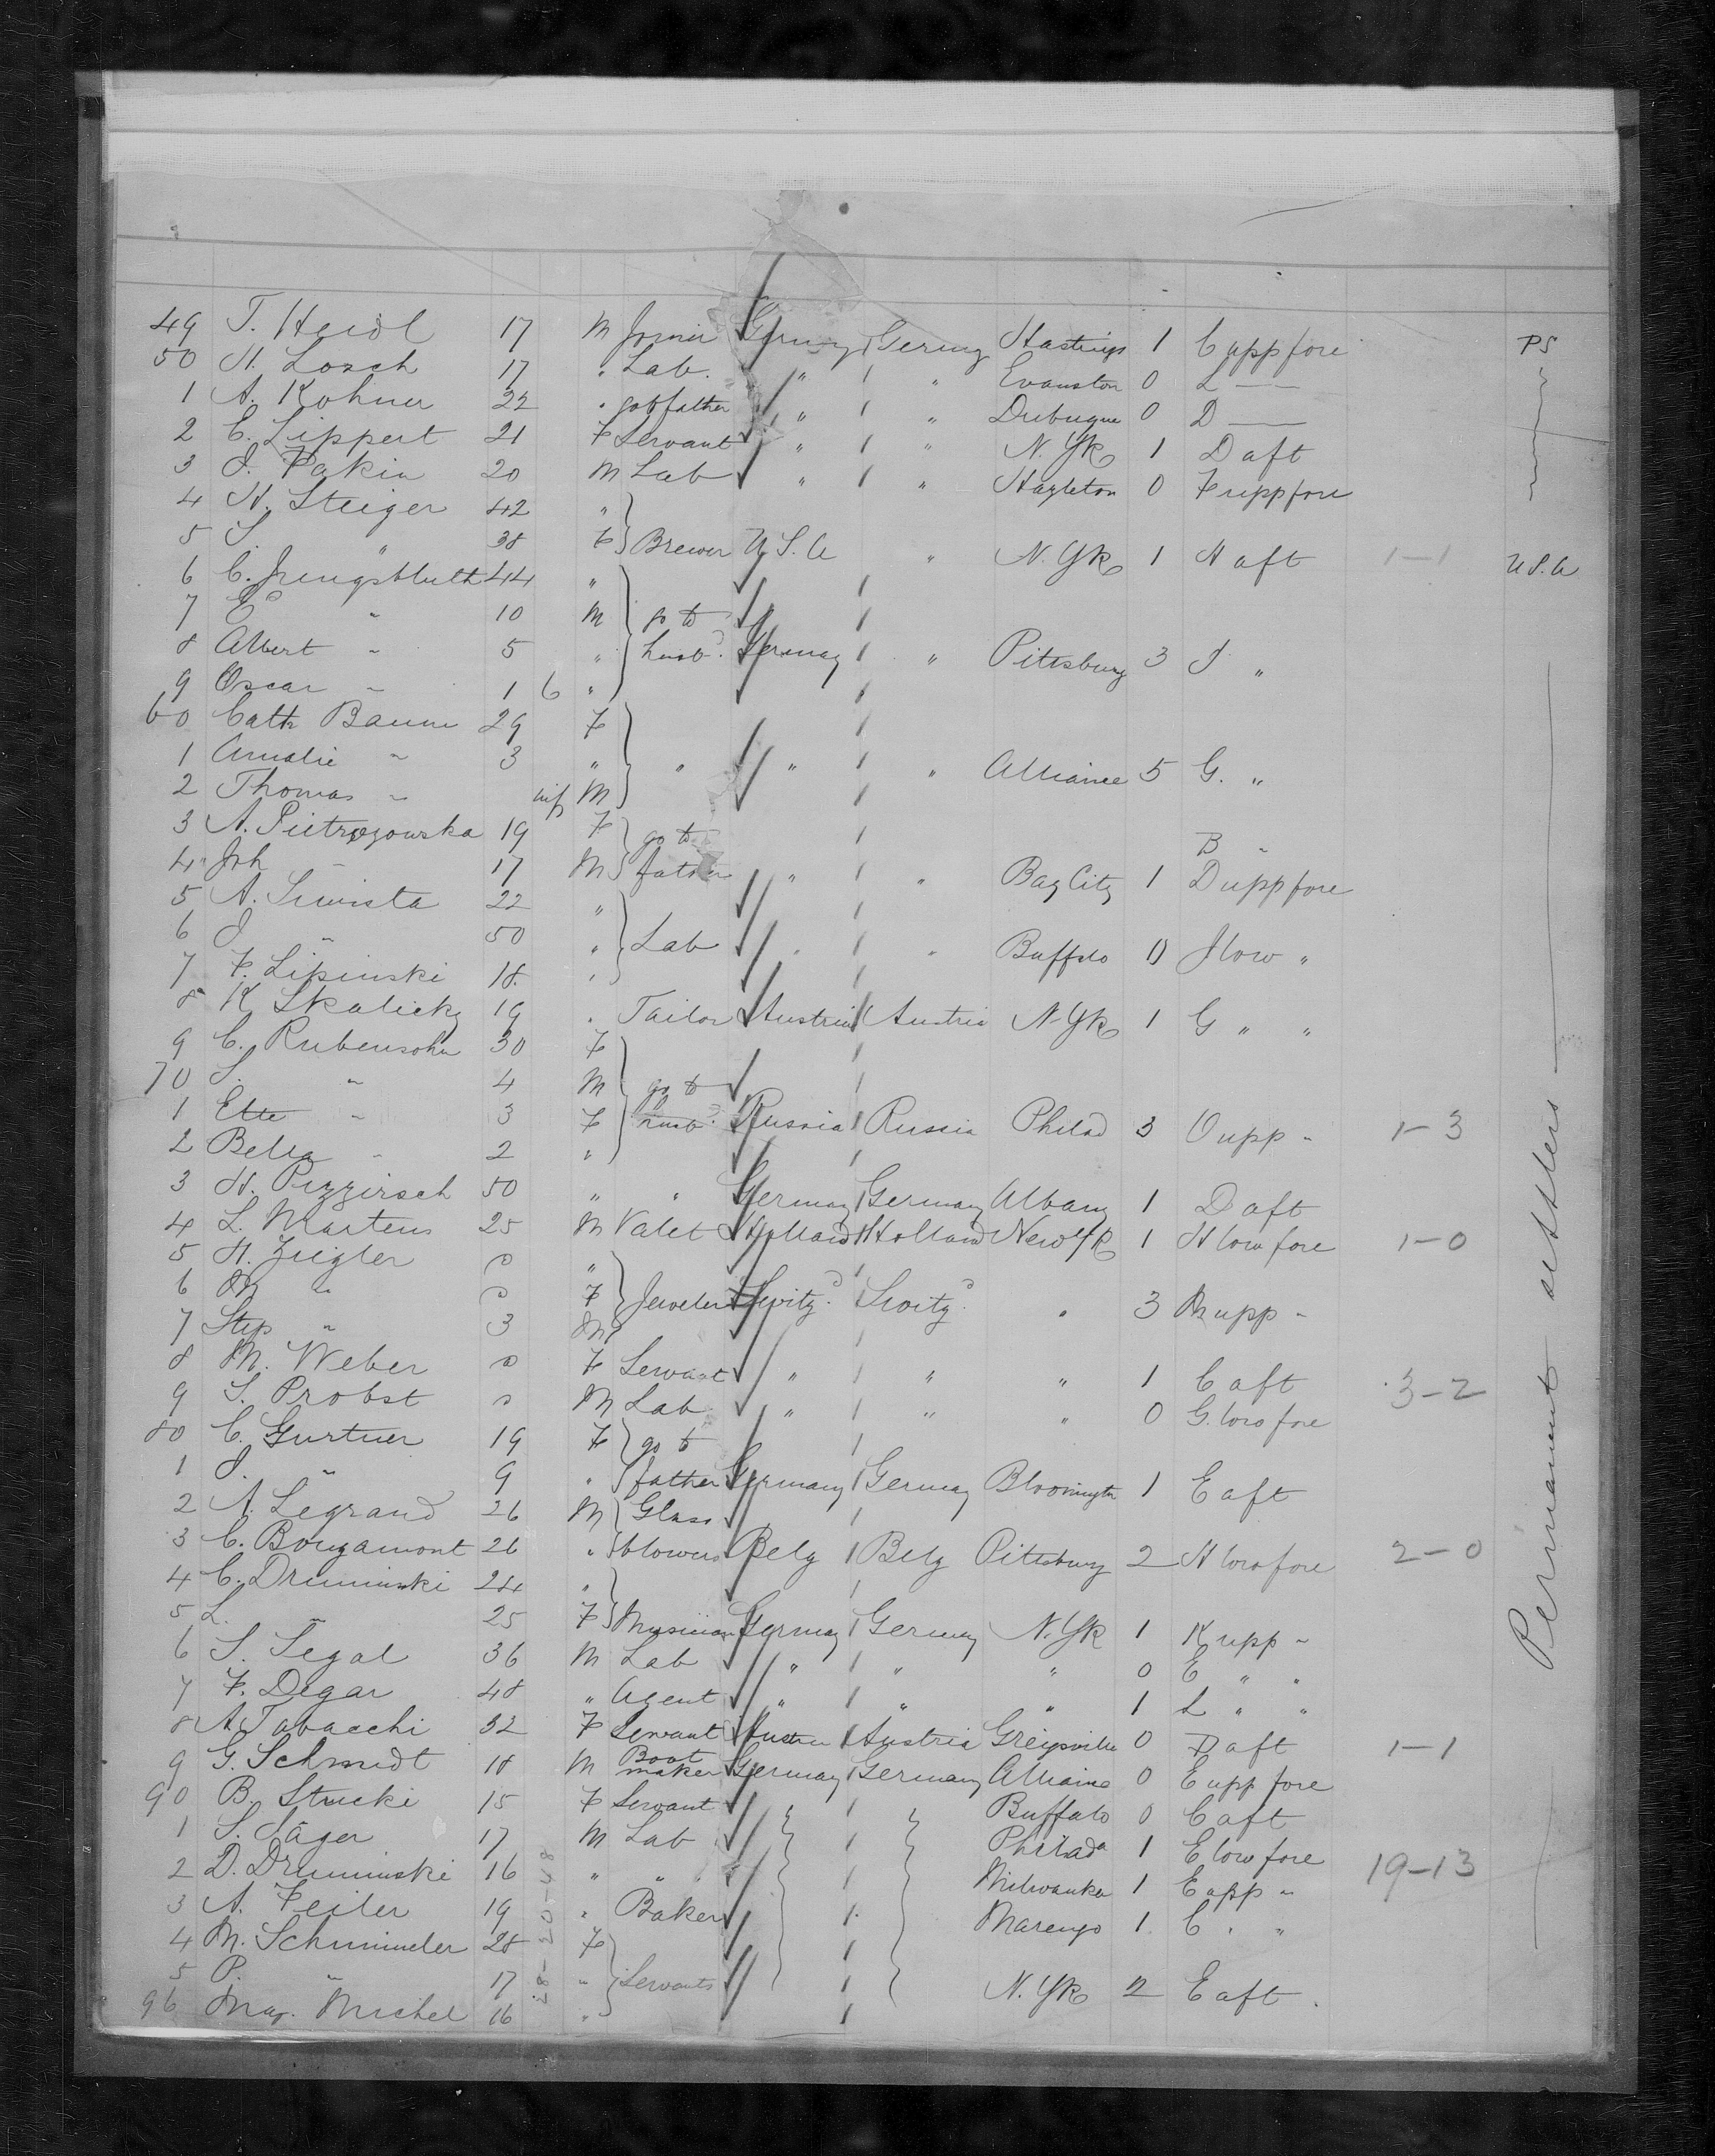 49 T. Heidl 17 M Joiner Germy Germy Hastings 1 C upp fore PS
50 H. Losch 17 " Lab. " " Evanston 0 L —
1 A. Kohner 22 " go to father " " Dubuque 0 D —
2 C. Lippert 21 F Servant " " N. Yk 1 D aft
3 J. Pakin 20 M Lab " " Hazleton 0 F upp fore
4 H. Steiger 42 "
5 S. " 38 F Brewer U.S.A " N. Yk 1 H aft 1-1 U.S.A
6 C. Jungsbluth 44 "
7 E " 10 M go to
8 Albert " 5 " husbd. Germany " Pittsburg 3 J "
9 Oscar " 1 6 "
60 Cath Baum 29 F
1 Amalie " 3 " " " " Alliance 5 G. "
2 Thomas " inf M
3 A. Pietrozowska 19 F go to B "
4 Joh " 17 M father " " Bay City 1 D upp fore
5 A. Siwista 22 "
6 J " 50 " Lab " " Buffalo 0 J low "
7 F. Lipinski 18. "
8 K Skalicky 19 " Tailor Austria Austria N-Yk 1 G " "
9 C. Rubensohn 30 F
70 S. " 4 M go to
1 Ette " 3 F husbd. Russia Russia Philad 3 O upp " 1-3
2 Bella " 2 "
3 H. Pizzirsch 50 " " Germany Germany Albany 1 D aft
4 L. Martens 25 M Valet Holland Holland New Yk 1 H low fore 1-0
5 H. Ziegler 0 "
6 M " 0 F Jeweler Switzd. Switzd. " 3 M upp "
7 Step " 3 M
8 M. Weber 0 F Servant " " " 1 C aft 3-2
9 S. Probst 0 M Lab " " " 0 G. low fore
80 C. Gurtner 19 F go to
1 J. " 9 " father Germany Germany Bloomington 1 E aft
2 A. Legrand 26 M Glass
3 C. Bougamont 26 " blowers Belg Belg Pittsburg 2 H low fore 2-0
4 C. Druminski 24 "
5 L. " 25 F Musician Germany Germany N. Yk 1 K upp "
6 S. Segal 36 M Lab " " " 0 E " "
7 F. Degar 48 " Agent " " " 1 L " "
8 A. Tavacchi 32 F Servant Austria Austria Greysville 0 D aft 1-1
9 G. Schmidt 18 M Boot maker Germany Germany Alliance 0 E upp fore
90 B. Stucki 15 F Servant Buffalo 0 C aft
1 S. Säger 17 M Lab Philada 1 E low fore
2 D. Druminski 16 " " Milwaukee 1 E upp " 19-13
3 A. Feiler 19 " Baker Marengo 1. C " "
4 M. Schimmeler 28 F
5 P. " 17 " Servants N. Yk 2 E aft.
96 Mag. Michel 16 "
28-20-48
Permanent settlers